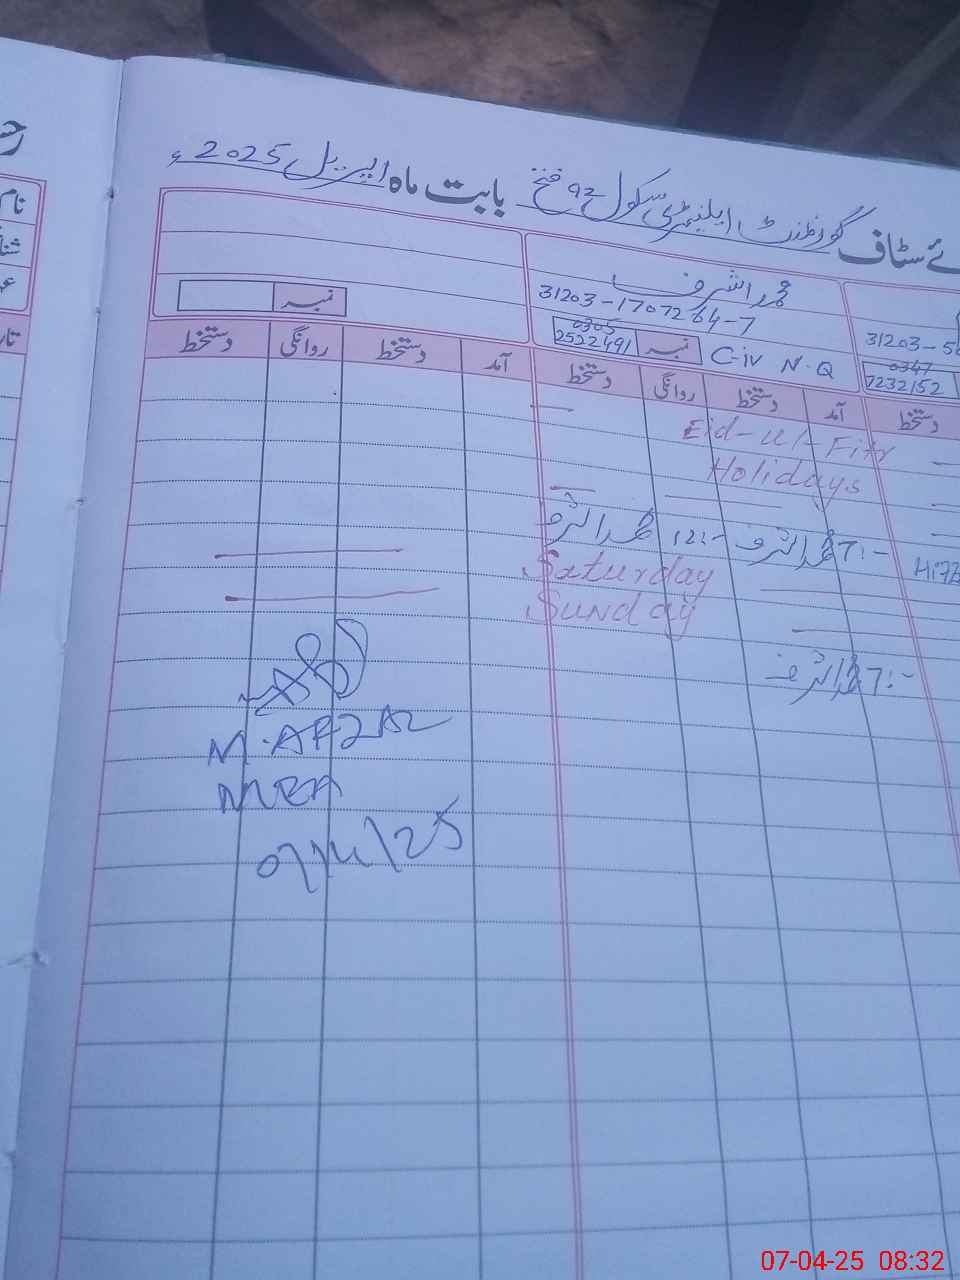 ئے سٹاف گورنمنٹ ایلیمنٹری سکول 92 فتح بابت ماہ اپریل 2025ء
محمد اشرف
31203-1707264-7
31203-5
0305
2522491
نمبر
C-iv N.Q
0347
7232152
نمبر
دستخط
آمد دستخط روانگی دستخط
آمد دستخط روانگی دستخط
Eid-ul-Fitr
Holidays
7:- محمد اشرف 12:- محمد اشرف
Saturday
Sunday
7:- محمد اشرف
M.AFZAL
MEA
07/4/25
نام
07-04-25 08:32